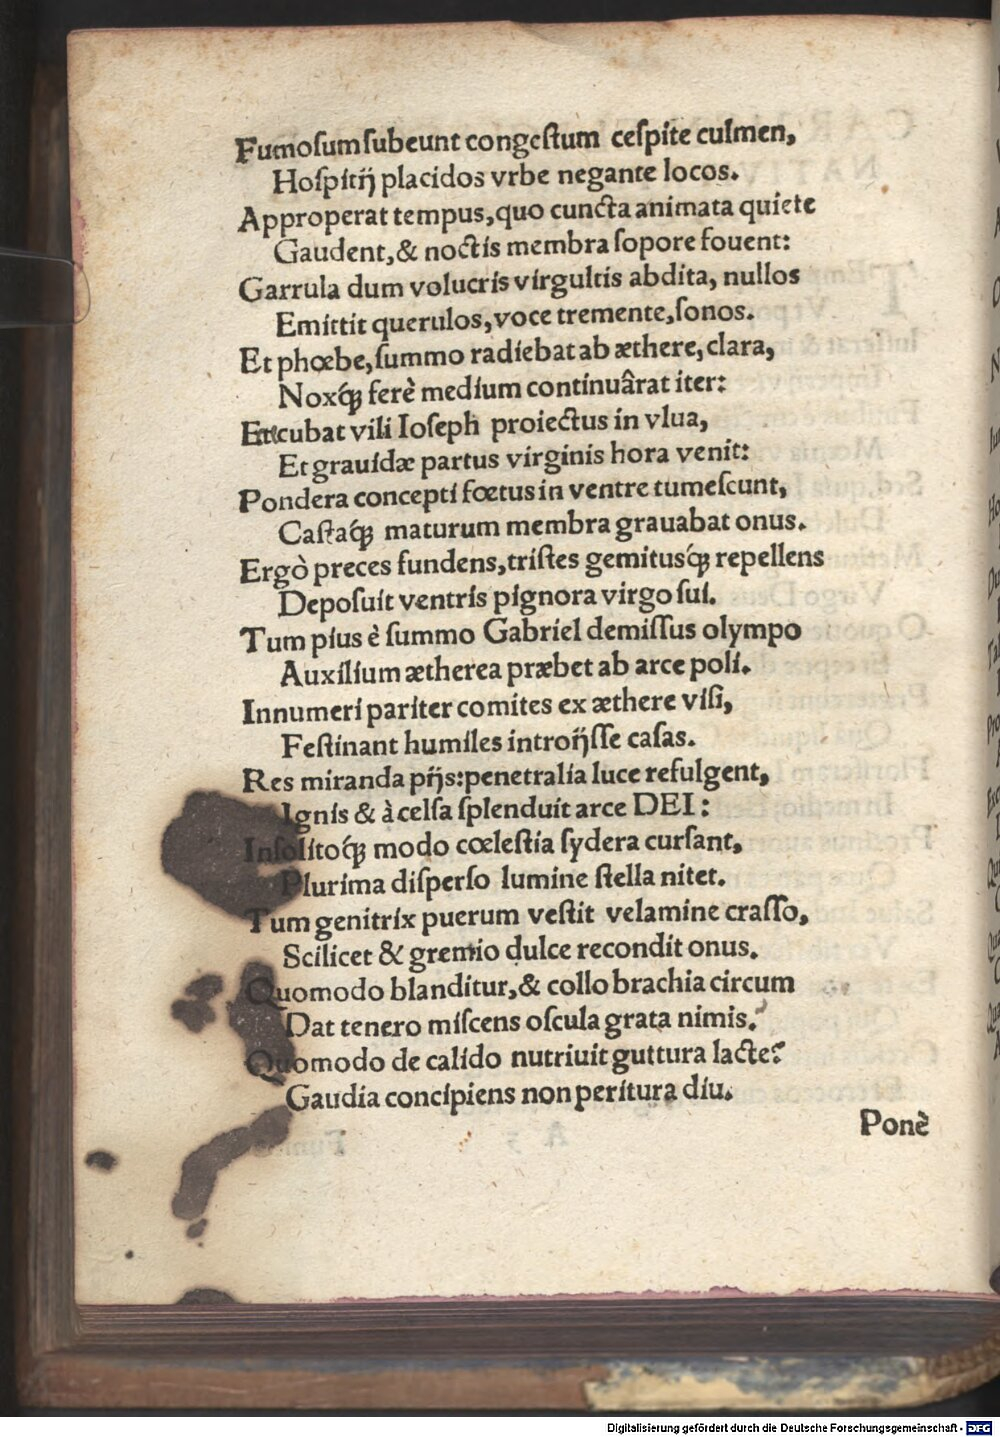 Fumoſum ſubeunt congeſtum ceſpite culmen,
Hoſpitij placidos vrbe negante locos.
Approperat tempus, quo cuncta animata quiete
Gaudent, & noctis membra ſopore fouent:
Garrula dum volucris virgultis abdita, nullos
Emittit querulos, voce tremente, ſonos.
Et phœbe, ſummo radiebat ab æthere, clara,
Noxq́; ferè medium continuârat iter:
Et cubat vili Ioſeph proiectus in vlua,
Et grauidæ partus virginis hora venit:
Pondera concepti fœtus in ventre tumeſcunt,
Caſtaq́; maturum membra grauabat onus.
Ergò preces fundens, triſtes gemitusq́; repellens
Depoſuit ventris pignora virgo ſui.
Tum pius è ſummo Gabriel demiſſus olympo
Auxilium ætherea præbet ab arce poli.
Innumeri pariter comites ex æthere viſi,
Feſtinant humiles introijſſe caſas.
Res miranda pijs: penetralia luce refulgent,
Ignis & à celſa ſplenduit arce DEI:
Inſolitoq́; modo cœleſtia ſydera curſant,
Plurima diſperſo lumine ſtella nitet.
Tum genitrix puerum veſtit velamine craſſo,
Scilicet & gremio dulce recondit onus.
Quomodo blanditur, & collo brachia circum
Dat tenero miſcens oſcula grata nimis?
Quomodo de calido nutriuit guttura lacte?
Gaudia concipiens non peritura diu.
Ponè
Digitalisierung gefördert durch die Deutsche Forschungsgemeinschaft - DFG